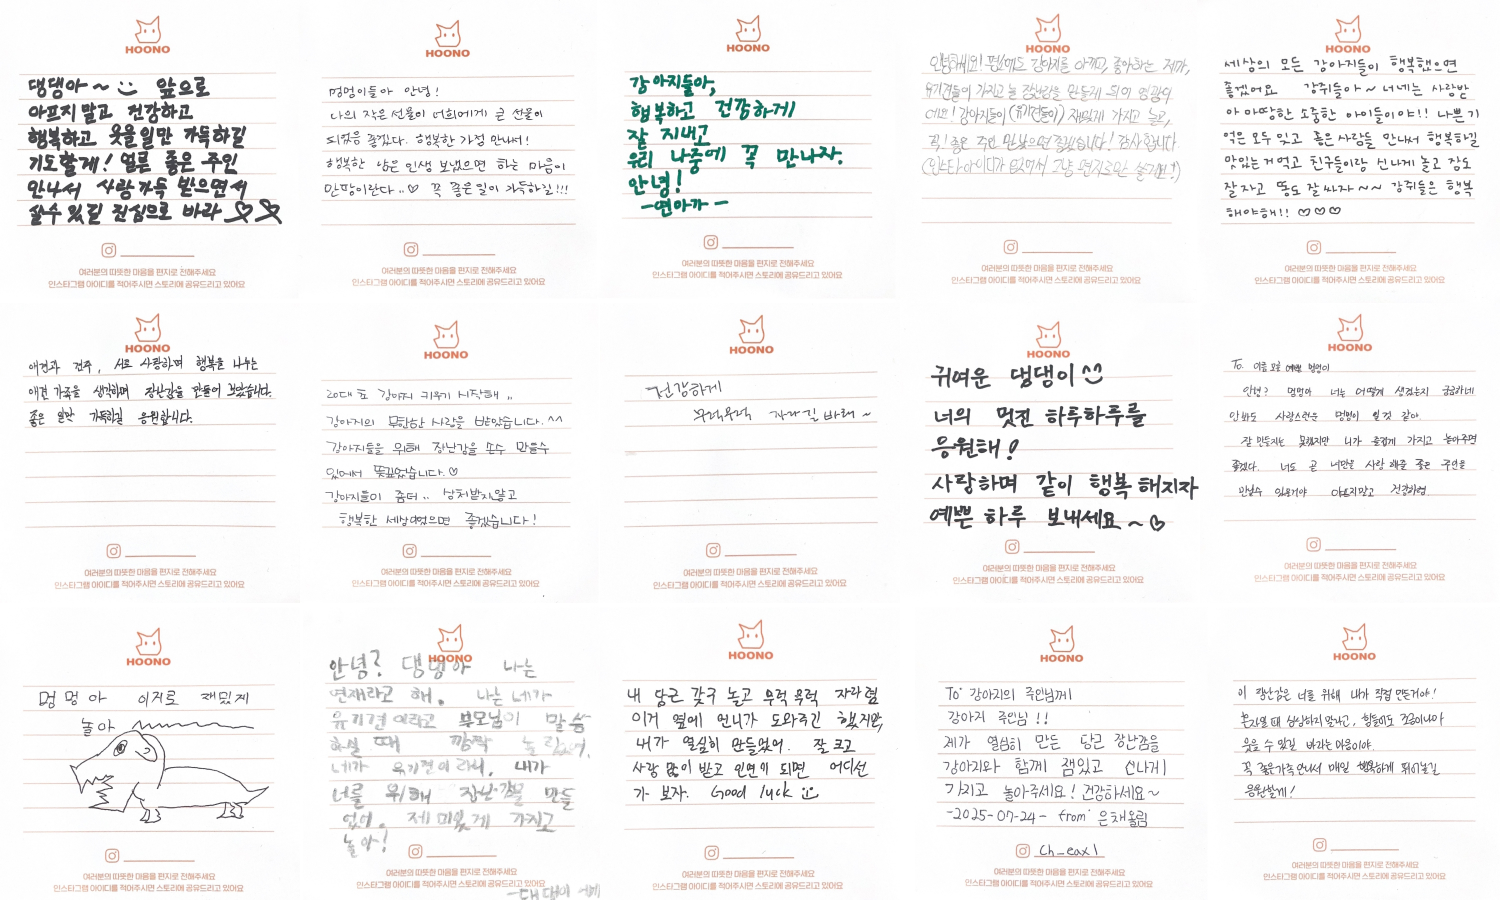 HOONO
댕댕아~ 앞으로
아프지 말고 건강하고
행복하고 웃을일만 가득하길
기도할게! 얼른 좋은 주인
만나서 사랑가득 받으면서
살수 있길 진심으로 바라 ♡♡
여러분의 따뜻한 마음을 편지로 전해주세요
인스타그램 아이디를 적어주시면 스토리에 공유드리고 있어요
HOONO
멍멍이들아 안녕!
나의 작은 선물이 너희에게 큰 선물이
되었음 좋겠다. 행복한 가정 만나서!
행복한 남은 인생 보냈으면 하는 마음이
만땅이란다..♡ 꼭 좋은일이 가득하길!!!
여러분의 따뜻한 마음을 편지로 전해주세요
인스타그램 아이디를 적어주시면 스토리에 공유드리고 있어요
HOONO
강아지들아,
행복하고 건강하게
잘 지내고
우리 나중에 꼭 만나자.
안녕!
-연아가-
여러분의 따뜻한 마음을 편지로 전해주세요
인스타그램 아이디를 적어주시면 스토리에 공유드리고 있어요
HOONO
안녕하세요! 평소에도 강아지를 아끼고, 좋아하는 제가,
유기견들이 가지고 놀 장난감을 만들게 되어 영광이
네요! 강아지들이 (유기견들이) 재밌게 가지고 놀고,
꼭! 좋은 주인 만났으면 좋겠습니다! 감사합니다.
(인스타 아이디가 없어서 그냥 편지로만 쓸게요!)
여러분의 따뜻한 마음을 편지로 전해주세요
인스타그램 아이디를 적어주시면 스토리에 공유드리고 있어요
HOONO
세상의 모든 강아지들이 행복했으면
좋겠어요 강쥐들아~ 너네는 사랑받
아 마땅한 소중한 아이들이야!! 나쁜기
억은 모두 잊고 좋은 사람들 만나서 행복하길
맛있는거 먹고 친구들이랑 신나게 놀고 잠도
잘 자고 똥도 잘 싸자~~ 강쥐들은 행복
해야해!! ♡♡♡
여러분의 따뜻한 마음을 편지로 전해주세요
인스타그램 아이디를 적어주시면 스토리에 공유드리고 있어요
HOONO
애견과 견주, 서로 사랑하며 행복을 나누는
애견 가족을 생각하며 장난감을 만들어 보았습니다.
좋은 일만 가득하길 응원합니다.
여러분의 따뜻한 마음을 편지로 전해주세요
인스타그램 아이디를 적어주시면 스토리에 공유드리고 있어요
HOONO
20대 초 강아지 키우기 시작해..
강아지의 무한한 사랑을 받았습니다.^^
강아지들을 위해 장난감을 손수 만들수
있어서 뜻깊었습니다.♡
강아지들이 좀더.. 상처받지않고
행복한 세상이었으면 좋겠습니다!
여러분의 따뜻한 마음을 편지로 전해주세요
인스타그램 아이디를 적어주시면 스토리에 공유드리고 있어요
HOONO
건강하게
무럭무럭 자라길 바래~
여러분의 따뜻한 마음을 편지로 전해주세요
인스타그램 아이디를 적어주시면 스토리에 공유드리고 있어요
HOONO
귀여운 댕댕이^^
너의 멋진 하루하루를
응원해!
사랑하며 같이 행복 해지자
예쁜 하루 보내세요~♡
여러분의 따뜻한 마음을 편지로 전해주세요
인스타그램 아이디를 적어주시면 스토리에 공유드리고 있어요
HOONO
To. 이름 모를 예쁜 멍멍이
안녕? 멍멍아 너는 어떻게 생겼는지 궁금하네
안봐도 사랑스러운 멍멍이 일것 같아.
잘 만들지는 못했지만 니가 즐겁게 가지고 놀아주면
좋겠다. 너도 곧 너만을 사랑 해줄 좋은 주인을
만날수 있을거야 아프지말고 건강하렴.
여러분의 따뜻한 마음을 편지로 전해주세요
인스타그램 아이디를 적어주시면 스토리에 공유드리고 있어요
HOONO
멈멍아 이거로 재밌게
놀아
여러분의 따뜻한 마음을 편지로 전해주세요
인스타그램 아이디를 적어주시면 스토리에 공유드리고 있어요
HOONO
안녕? 댕댕아 나는
연재라고 해. 나는 네가
유기견이라고 부모님이 말씀
하실 때 깜짝 놀랐어.
네가 유기견이라니, 내가
너를 위해 장난감을 만들
었어. 재미있게 가지고
놀아!
여러분의 따뜻한 마음을 편지로 전해주세요
인스타그램 아이디를 적어주시면 스토리에 공유드리고 있어요
HOONO
내 당근 갖구 놀고 무럭무럭 자라렴
이거 옆에 언니가 도와주긴 했지만,
내가 열심히 만들었어. 잘 크고
사랑 많이 받고 인연이 되면 어디선
가 보자. Good luck
여러분의 따뜻한 마음을 편지로 전해주세요
인스타그램 아이디를 적어주시면 스토리에 공유드리고 있어요
HOONO
To. 강아지의 주인님께
강아지 주인님!!
제가 열심히 만든 당근 장난감을
강아지와 함께 잼있고 신나게
가지고 놀아주세요! 건강하세요~
-2025-07-24- from. 은채올림
Ch_eax1
여러분의 따뜻한 마음을 편지로 전해주세요
인스타그램 아이디를 적어주시면 스토리에 공유드리고 있어요
HOONO
이 장난감은 너를 위해 내가 직접 만든거야!
혼자일 때 상심하지 말라고, 힘들어도 조금이나마
웃을 수 있길 바라는 마음이야.
꼭 좋은가족 만나서 매일 행복하게 뛰어놀길
응원할게!
여러분의 따뜻한 마음을 편지로 전해주세요
인스타그램 아이디를 적어주시면 스토리에 공유드리고 있어요